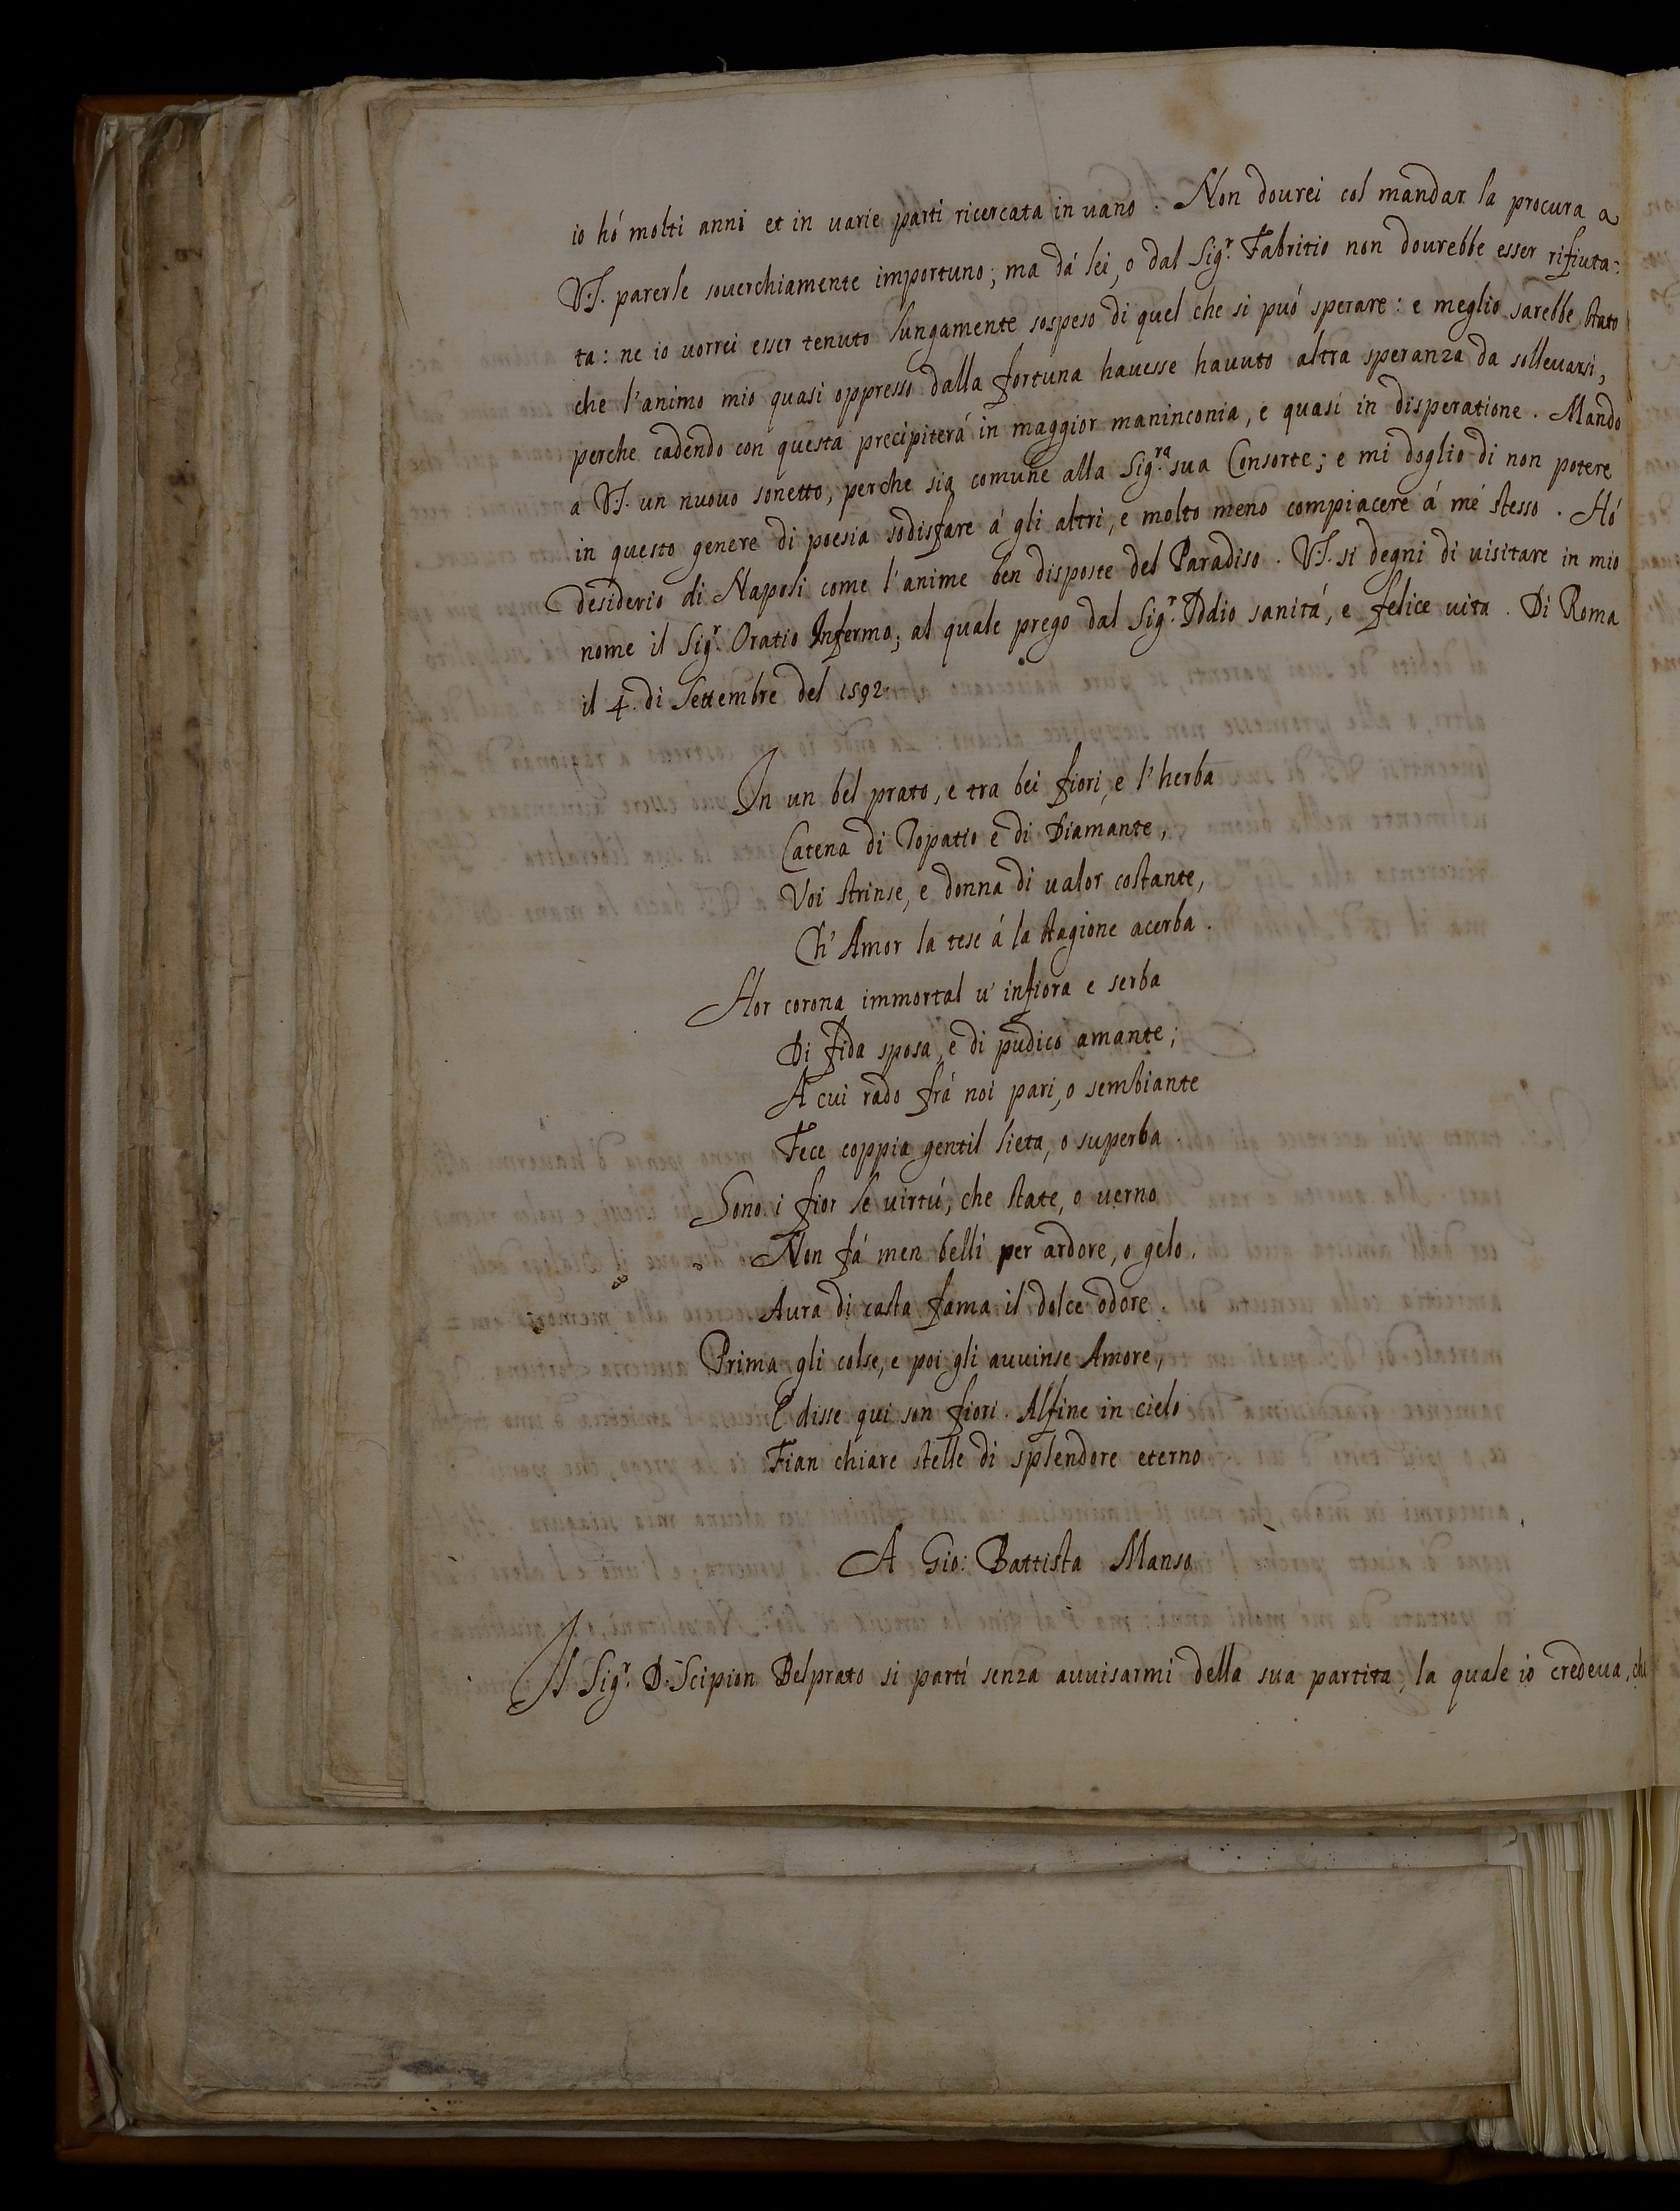 io hó molti anni et in uarie parti ricercata in uano. Non dourei col mandar la procura a
V.S. parerle souerchiamente importuno; ma dá lei, o dal Sig.r Fabritio non dourebbe esser rifiuta:
ta: ne io uorrei esser tenuto lungamente sospeso di quel che si puó sperare: e meglio sarebbe stato
che l'animo mio quasi oppresso dalla fortuna hauesse hauuto altra speranza da solleuarsi,
perche cadendo con questa precipiterá in maggior maninconia, e quasi in disperatione. Mando
a V.S. un nuouo sonetto, perche sia comune alla Sig.ra sua Consorte; e mi doglio di non potere
in questo genere di poesia sodisfare á gli altri, e molto meno compiacere á mé stesso. Hó
desiderio di Napoli come l'anime ben disposte del Paradiso. V.S. si degni di uisitare in mio
nome il Sig.r Oratio Infermo; al quale prego dal Sig.r Iddio sanitá, e felice uita. Di Roma
il 4. di Settembre del 1592.
In un bel prato, e tra bei fiori, e l'herba
Catena di Topatio e di Diamante,
Voi strinse, e donna di ualor costante,
Ch' Amor la tese á la stagione acerba.
Hor corona immortal u' infiora e serba
Di fida sposa, e di pudico amante;
A cui rado frá noi pari, o sembiante
Fece coppia gentil lieta, o superba.
Sono i fior le virtú, che state, o uerno
Non fá men belli per ardore, o gelo.
Aura di casta fama il dolce odore.
Prima gli colse, e poi gli auuinse Amore,
E disse qui son fiori. Alfine in cielo
Fian chiare stelle di splendore eterno
A Gio: Battista Manso
Il Sig.r D. Scipion Belprato si partí senza auuisarmi della sua partita, la quale io credeua, che